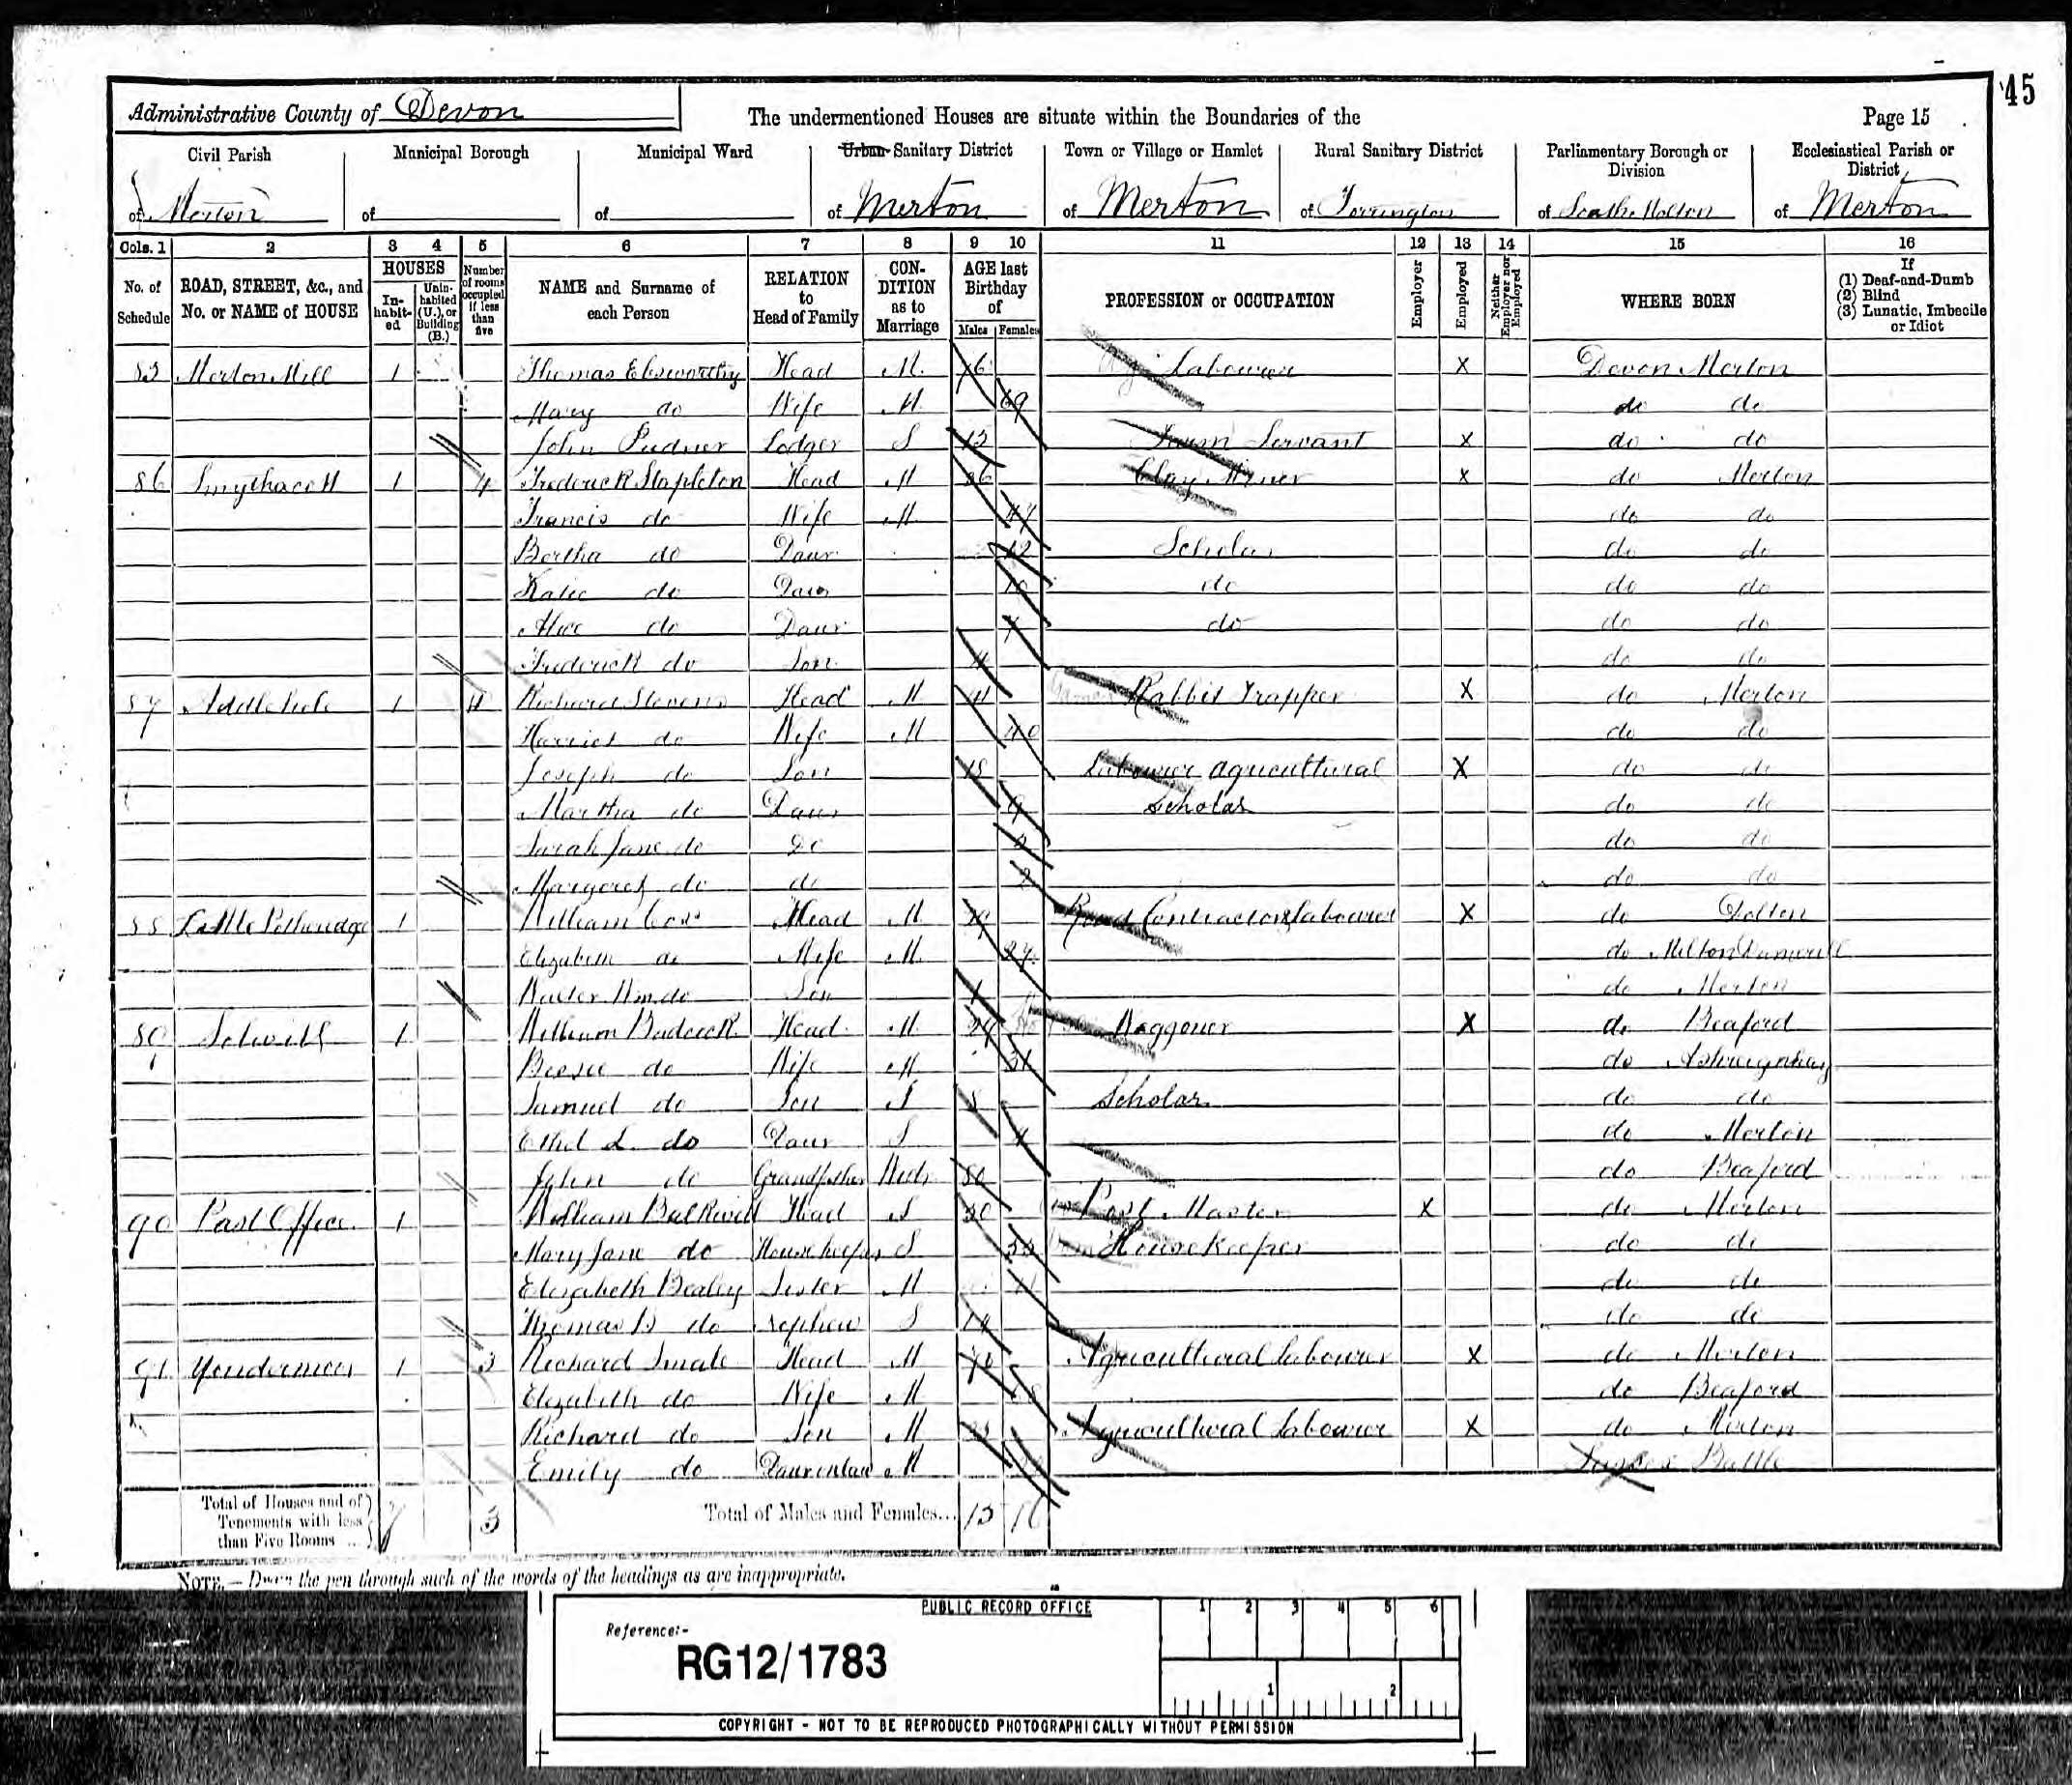 45
Administrative County of Devon
The undermentioned Houses are situate within the Boundaries of the
Page 15
Civil Parish Municipal Borough Municipal Ward Urban Sanitary District Town or Village or Hamlet Rural Sanitary District Parliamentary Borough or Division Ecclesiastical Parish or District
of Merton of of of Merton of Merton of Torrington of South Molton of Merton
Cols. 1 2 3 4 5 6 7 8 9 10 11 12 13 14 15 16
No. of Schedule ROAD, STREET, &c., and No. or NAME of HOUSE HOUSES Inhabited Uninhabited (U.), or Building (B.) Number of rooms occupied if less than five NAME and Surname of each Person RELATION to Head of Family CONDITION as to Marriage AGE last Birthday of Males Females PROFESSION or OCCUPATION Employer Employed Neither Employer nor Employed WHERE BORN If (1) Deaf-and-Dumb (2) Blind (3) Lunatic, Imbecile or Idiot
Merton Mill 1 Thomas Elsworthy Head M. Labourer X Devon Merton
Mary do Wife M 69 do do
John Pudner Lodger S Farm Servant X do do
86 Smythacott 1 4 Frederick Stapleton Head M 36 Clay Miner X do Merton
Francis do Wife M do do
Bertha do Daur 12 Scholar do do
Katie do Daur 10 do do do
Alice do Daur 7 do do do
Frederick do Son 4 do do
87 1 4 Richard Stevens Head M 41 Rabbit Trapper X do Merton
Harriet do Wife M 40 do do
Joseph do Son Labourer agricultural X do do
Martha do Daur 9 Scholar do do
Sarah Jane do Do do do
Margaret do do 2 do do
88 Little Potheridge 1 William Head M 29 Road Contractors Labourer X do Dolton
Elizabeth do Wife M 27 do Milton Damerell
Walter Wm. do Son 1 do Merton
89 1 William Head M 29 Waggoner X do Beaford
Bessie do Wife M 31 do Ashreigney
Samuel do Son S 8 Scholar do do
Ethel L. do Daur S 4 do Merton
John do Grandfather Widr 80 do Beaford
90 Post Office 1 William Balkwill Head S Post Master X do Merton
Mary Jane do Housekeeper S Housekeeper do do
Elizabeth Bealey Sister M do do
Thomas B do Nephew S 14 do do
91 Yondermoor 1 3 Richard Smale Head M 70 Agricultural Labourer X do Merton
Elizabeth do Wife M 68 do Beaford
Richard do Son M Agricultural Labourer X do Merton
Emily do Daurinlaw M Sussex Battle
Total of Houses and of Tenements with less than Five Rooms 7 3 Total of Males and Females... 15 16
NOTE.—Draw the pen through such of the words of the headings as are inappropriate.
PUBLIC RECORD OFFICE
1 2 3 4 5 6
Reference:-
RG12/1783
1 2
COPYRIGHT - NOT TO BE REPRODUCED PHOTOGRAPHICALLY WITHOUT PERMISSION